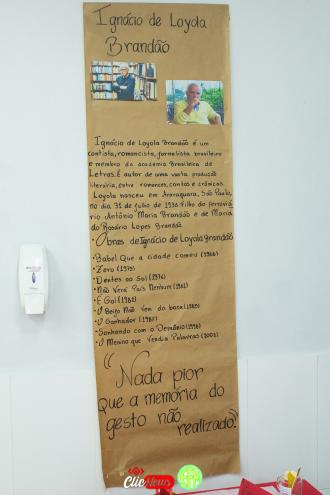 Ignácio de Loyola
Brandão
Ignácio de Loyola Brandão é um
contista, romancista, jornalista brasileiro
e membro da academia Brasileira de
Letras. É autor de uma vasta produção
literária, entre romances, contos e crônicas.
Loyola nasceu em Araraquara, São Paulo,
no dia 31 de julho de 1936. Filho do ferroviá
rio Antônio Maria Brandão e de Maria
do Rosário Lopes Brandão.
• Obras de Ignácio de Loyola Brandão
• Babel Que a cidade comeu (1968)
• Zero (1975)
• Dentes ao Sol (1976)
• Não Verá País Nenhum (1981)
• É Gol (1982)
• O Beijo Não Vem da boca (1985)
• O Ganhador (1987)
• Sonhando com o Demônio (1998)
• O Menino que Vendia Palavras (2007)
"Nada pior
que a memória do
gesto não
realizado!"
ClicNews